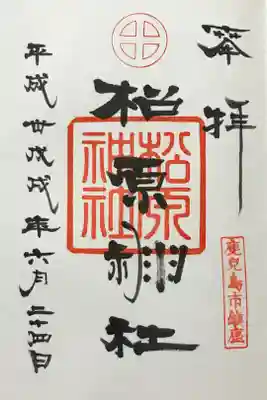 奉拝
柗原神社
柗原神社
鹿兒島市鎮座
平成卅戊戌年六月二十四日